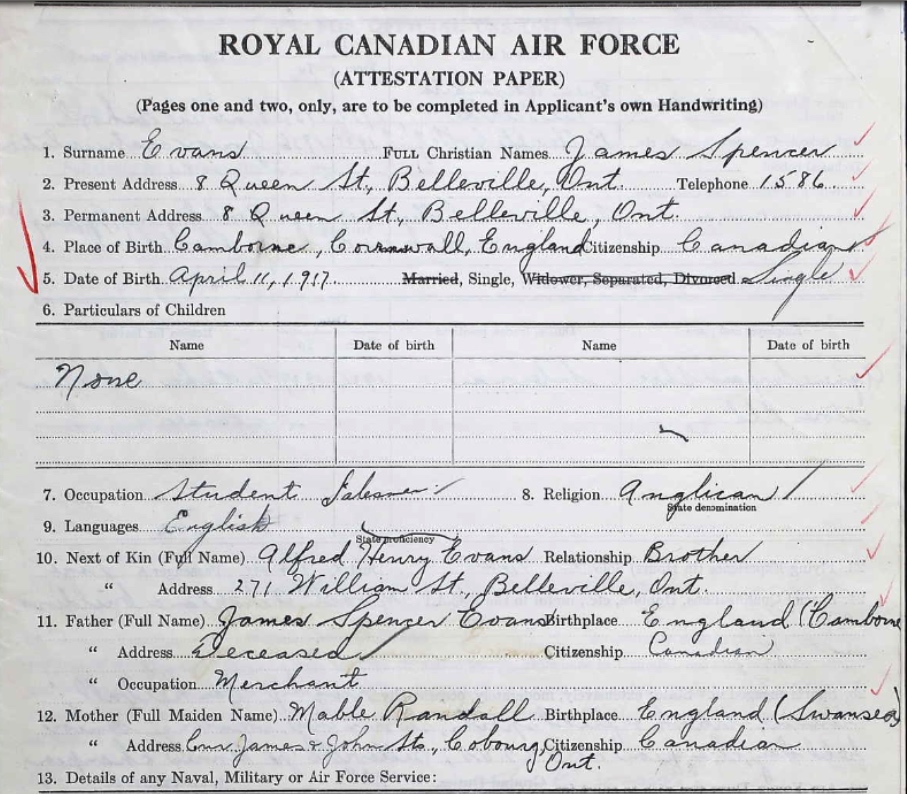 ROYAL CANADIAN AIR FORCE
(ATTESTATION PAPER)
(Pages one and two, only, are to be completed in Applicant's own Handwriting)
1. Surname Evans FULL Christian Names James Spencer
2. Present Address 8 Queen St., Belleville, Ont. Telephone 1586
3. Permanent Address 8 Queen St., Belleville, Ont.
4. Place of Birth Camborne, Cornwall, England Citizenship Canadian
5. Date of Birth April 11, 1917 Married, Single, Widower, Separated, Divorced Single
6. Particulars of Children
Name Date of birth Name Date of birth
None
7. Occupation Student Salesman 8. Religion Anglican
State denomination
9. Languages English
State proficiency
10. Next of Kin (Full Name) Alfred Henry Evans Relationship Brother
" Address 271 William St., Belleville, Ont.
11. Father (Full Name) James Spencer Evans Birthplace England (Camborne
" Address Deceased Citizenship Canadian
" Occupation Merchant
12. Mother (Full Maiden Name) Mable Randall Birthplace England (Swansea)
" Address Cnr. James & John Sts., Cobourg, Citizenship Canadian
Ont.
13. Details of any Naval, Military or Air Force Service: